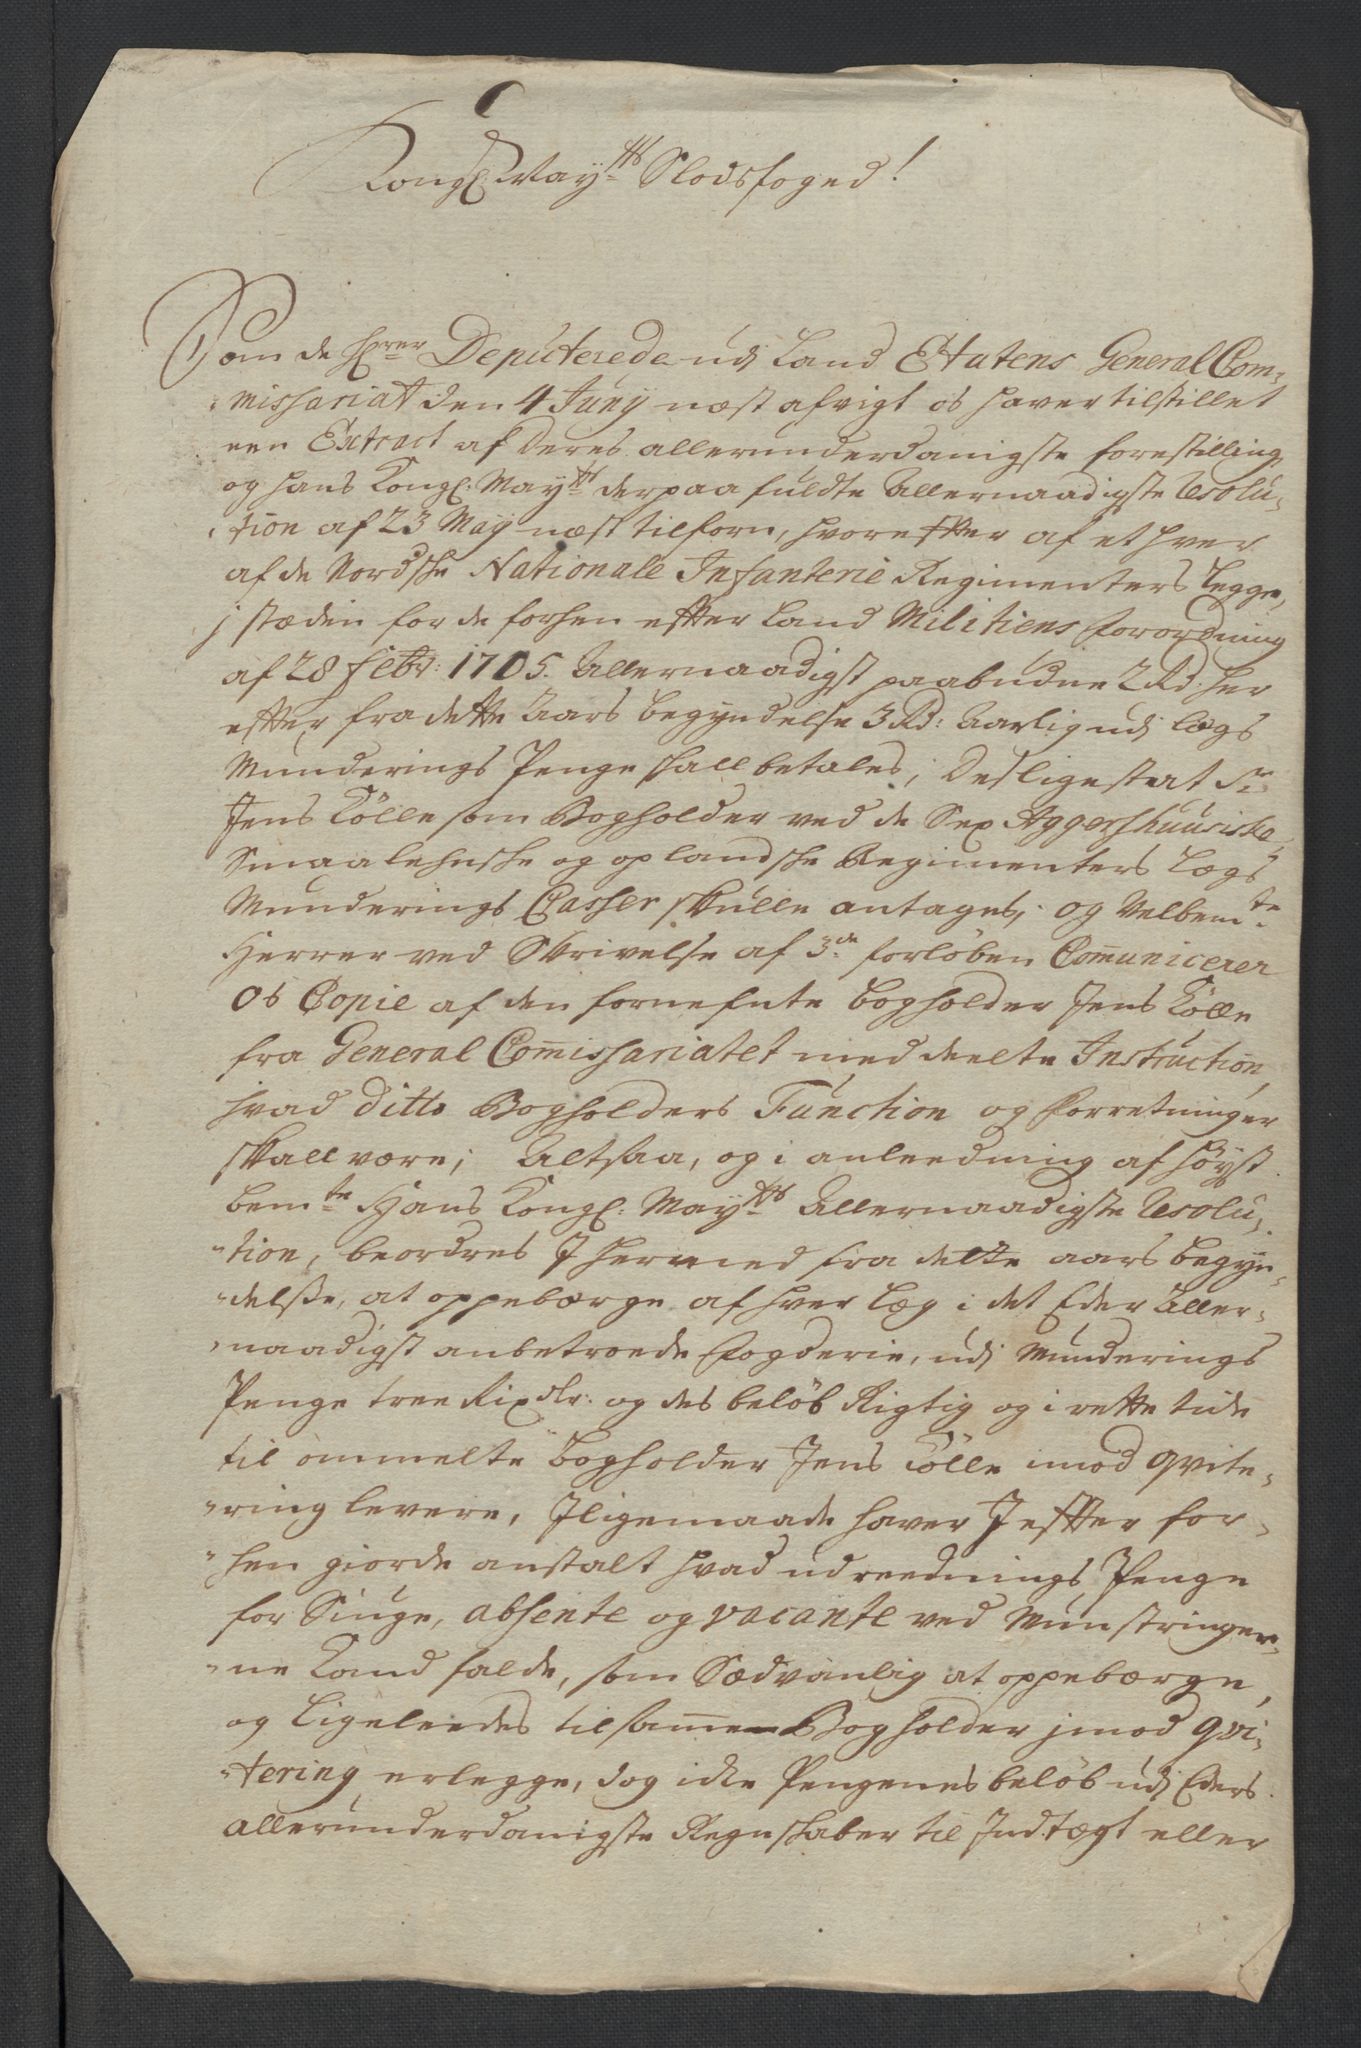 Kongl: May:tts Slodsfoged!
Som de H:rrer Deputerede udj Land Etatens General Com-
missariat den 4 Juny næst afvigt os haver tilstillet
een Extract af Deres allerunderdanigste forestilling,
og Hans Kongl: May:tts derpaa fuldte Allernaadigste Resolu-
tion af 23 May næst tilforn, hvorefter af et hver
af de Nordske Nationale Infanterie Regimenters Legger,
j stæden for de forhen efter Land Militiens Forordning
af 28 Febr: 1705. Allernaadigst paabudne 2 Rd: her
efter fra dette Aars begyndelse 3 Rd: Aarlig udj Lægs
Munderings Penge skall betales; Desligest at Sr:
Jens Kölle som Bogholder ved de Sex Aggershuusiske,
Smaalehnske og oplandske Regimenters Lægs
Munderings Casser skulle antages; og Velbem:te
Herrer ved Skrivelse af 3:de forløben Communicerer
Os Copie af den fornefnte bogholder Jens Kölle
fra General Commissariatet meddeelte Instruction,
hvad ditto Bogholders Function og Forretninger
skall være; Altsaa, og i anleedning af høyst
bem:te Hans Kongl: May:tts Allernaadigste Resolu-
tion, beordres I hermed fra dette aars begyn-
delsse, at oppebærge af hver Læg i det Eder Aller-
naadigst anbetroede Fogderie, udj Munderings
Penge tree Rixdlr: og des beløb Rigtig og i rette tide
til ommelte bogholder Jens Kölle imod qvite-
ring levere, Iligemaade haver I efter for-
hen giorde anstalt hvad udreednings Penge
for Siuge, absente og vacante ved Munstringer-
ne Kand falde, som Sædvanlig at oppebærge,
og Ligeleedes til samme Bogholder jmod qvi-
tering erlegge, dog icke Pengenes beløb udj Eders
allerunderdanigste Regnskaber til Indtægt eller